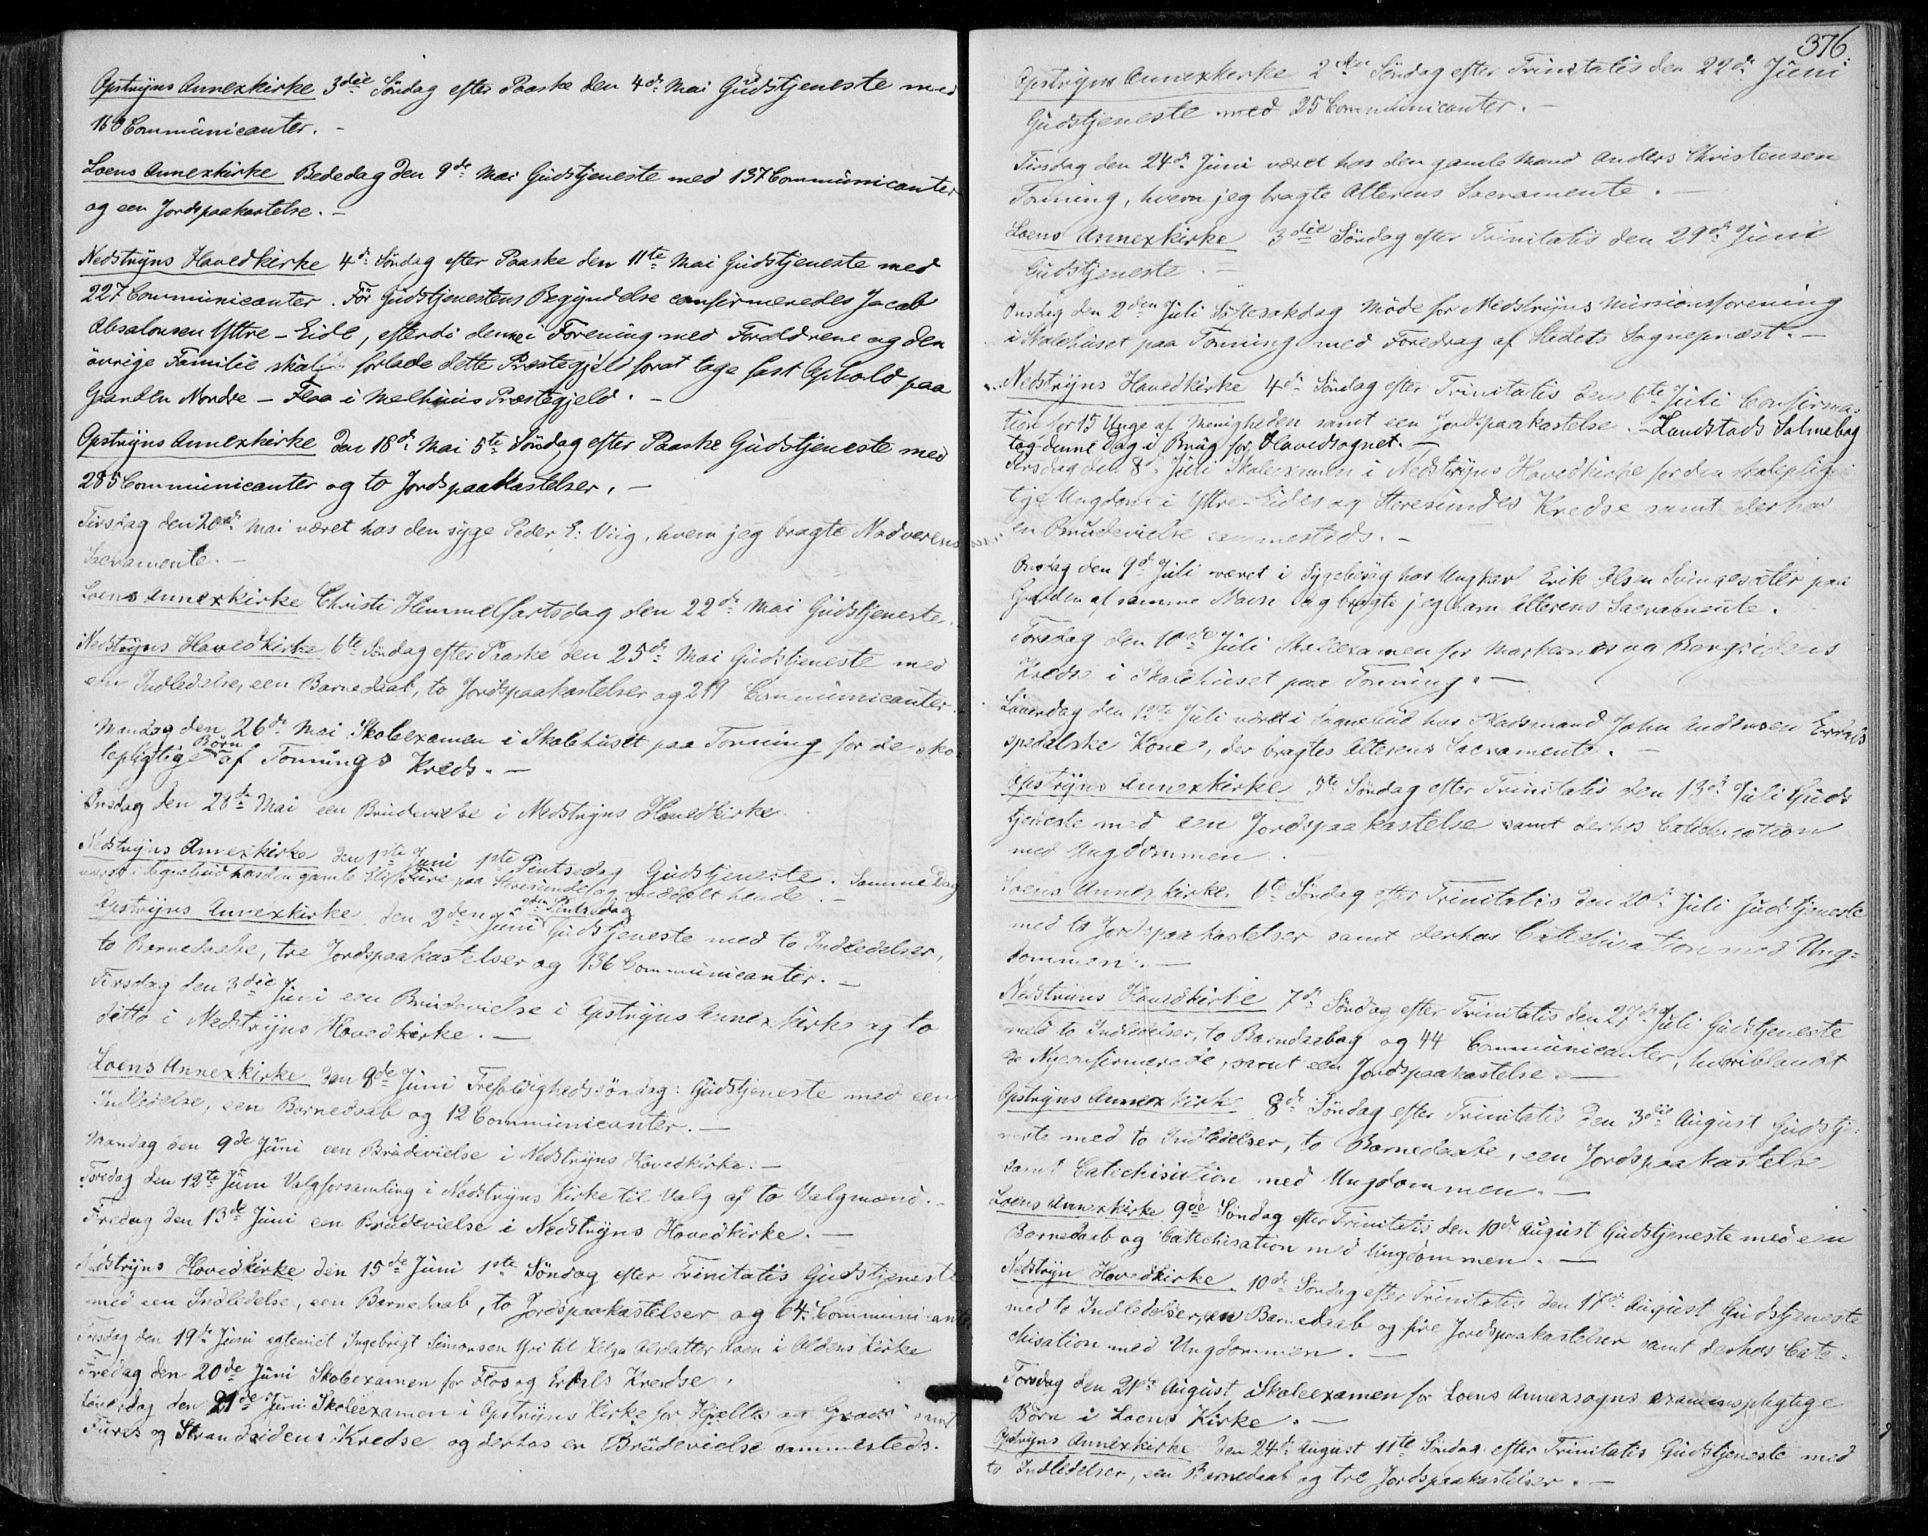 Opstryns Annexkirke 3die Søndag efter Paaske den 4de Mai Gudstjeneste med
160 Communicanter. -
Loens Annexkirke Bededag den 9de Mai Gudstjeneste med 137 Communicanter
og een Jordspaakastelse. -
Nedstryns Hovedkirke 4de Søndag efter Paaske den 11te Mai Gudstjeneste med
227 Communicanter. Før Gudstjenestens Begyndelse confirmeredes Jacob
Absalonsen Yttre-Eide, efterdi denne i Forening med Forældrene og den
øvrige Familie skal forlade dette Præstegjeld forat tage fast Ophold paa
Gaarden Nordre-Flaa i Melhuus Præstegjeld. -
Opstryns Annexkirke den 18de Mai 5te Søndag efter Paaske Gudstjeneste med
285 Communicanter og to Jordspaakastelser. -
Tirsdag den 20de Mai været hos den syge Peder E. Viig, hvem jeg bragte Nadverens
Sacramente. -
Loens Annexkirke Christi Himmelfartsdag den 22de Mai Gudstjeneste.
Nedstryns Hovedkirke 6te Søndag efter Paaske den 25de Mai Gudstjeneste med
een Indledelse, een Barnedaab, to Jordspaakastelser og 219 Communicanter.
Mandag den 26de Mai Skoleexamen i Skolehuset paa Tonning for de sko-
lepligtige Børn af Tonnings Kreds. -
Onsdag den 28de Mai een Brudevielse i Nedstryns Hovedkirke.
Nedstryns Annexkirke den 1ste Juni 1ste Pintsedag Gudstjeneste. Samme Dag
været i Sognebud hos den gamle paa og meddelt hende. -
Opstryns Annexkirke den 2den Juni 2den Pintsedag Gudstjeneste med to Indledelser,
to Barnedaabe, tre Jordspaakastelser og 136 Communicanter. -
Tirsdag den 3die Juni een Brudevielse i Opstryns Annexkirke og to
ditto i Nedstryns Hovedkirke. -
Loens Annexkirke den 8de Juni Trefoldighedssøndag: Gudstjeneste med een
Indledelse, een Barnedaab og 12 Communicanter. -
Mandag den 9de Juni een Brudevielse i Nedstryns Hovedkirke. -
Torsdag den 12te Juni Valgforsamling i Nedstryns Kirke til Valg af to Valgmænd. -
Fredag den 13de Juni een Brudevielse i Nedstryns Hovedkirke. -
Nedstryns Hovedkirke den 15de Juni 1ste Søndag efter Trinitatis Gudstjeneste
med een Indledelse, een Barnedaab, to Jordspaakastelser og 64 Communicanter
Torsdag den 19de Juni egteviet Ingebrigt Simonsen Yri til Helga Olsdatter Loen i Oldens Kirke
Fredag den 20de Juni Skoleexamen for Flos og Erdals Kredse.
Løverdag den 21de Juni Skoleexamen i Opstryns Kirke for Hjelles og samt
Fures og Strandsidens Kredse og derhos en Brudevielse sammesteds.
376.
Opstryns Annexkirke 2den Søndag efter Trinitatis den 22de Juni
Gudstjeneste med 25 Communicanter. -
Tirsdag den 24de Juni været hos den gamle Mand Anders Christensen
Tonning, hvem jeg bragte Alterens Sacramente. -
Loens Annexkirke 3die Søndag efter Trinitatis den 29de Juni
Gudstjeneste. -
Onsdag den 2den Juli Møde for Nedstryns Missionsforening
i Skolehuset paa Tonning med Foredrag af Stedets Sognepræst. -
Nedstryns Hovedkirke 4de Søndag efter Trinitatis den 6te Juli Confirma-
tion for 15 Unge af Menigheden samt een Jordspaakastelse. - Landstads Salmebog
tog denne Dag i Brug for Hovedsognet. -
Tirsdag den 8de Juli Skoleexamen i Nedstryns Hovedkirke for den skoleplig-
tige Ungdom i Yttre-Eides og Storesundes Kredse samt derhos
en Brudevielse sammesteds. -
Onsdag den 9de Juli været i Sygebesøg hos Ungkarl Erik Olsen Svingesæter paa
Gaarden af samme Navn og bragte jeg ham Alterens Sacramente.
Torsdag den 10de Juli Skoleexamen for Markernes og Bergsidens
Kredse i Skolehuset paa Tonning. -
Løverdag den 12te Juli været i Sognebud hos Pladsmand John Andersen Erdals
spedalske Kone, der bragtes Alterens Sacramente. -
Opstryns Annexkirke 5te Søndag efter Trinitatis den 13de Juli Guds-
tjeneste med een Jordspaakastelse samt derhos Catechisation
med Ungdommen. -
Loens Annexkirke 6te Søndag efter Trinitatis den 20de Juli Gudstjeneste
med to Jordspaakastelser samt derhos Catechisation med Ung-
dommen. -
Nedstryns Hovedkirke 7de Søndag efter Trinitatis den 27de Juli Gudstjeneste
med to Indledelser, to Barnedaabe og 44 Communicanter, hvoriblandt
de Nyconfirmerede, samt een Jordspaakastelse. -
Opstryns Annexkirke 8de Søndag efter Trinitatis den 3die August Gudstje-
neste med to Indledelser, to Barnedaabe, een Jordspaakastelse
samt Catechisation med Ungdommen. -
Loens Annexkirke 9de Søndag efter Trinitatis den 10de August Gudstjeneste med een
Barnedaab og Catechisation med Ungdommen. -
Nedstryn Hovedkirke 10de Søndag efter Trinitatis den 17de August Gudstjeneste
med to Indledelser, een Barnedaab og fire Jordspaakastelser samt derhos Cate-
chisation med Ungdommen. -
Torsdag den 21de August Skoleexamen for Loens Annexsogns examenspligtige
Børn i Loens Kirke. -
Opstryns Annexkirke den 24de August 11te Søndag efter Trinitatis Gudstjeneste med
to Indledelser, een Barnedaab og tre Jordspaakastelser. -